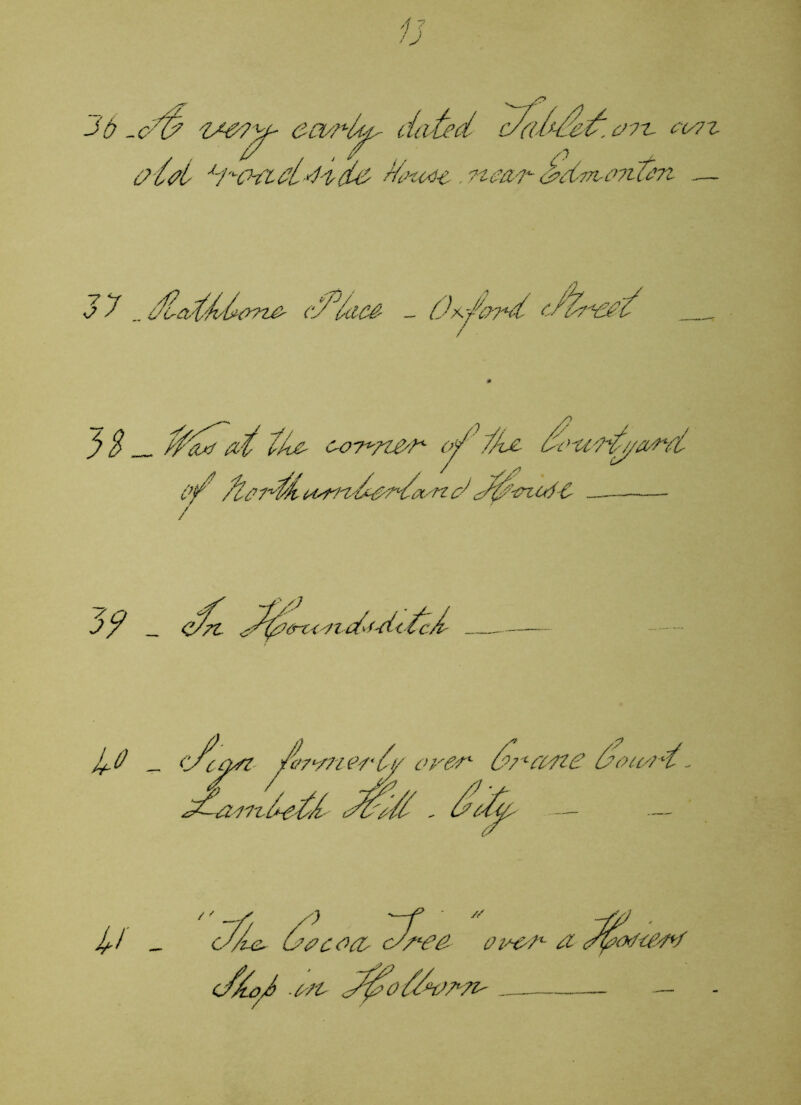 13
36 - A very early dated Tablet. on an
old roadside House. near Edmonton —
37 - Rathbone Place - Oxford Street —
38 — Was at the corner of the Courtyard
of Northumberland House —
39 - In Houndsditch —
40 - Sign formerly over Crane Court -
Lambeth Hill - City — —
41 - "The Cocoa Tree" over a Hosiers
Shop in Holborn — — -